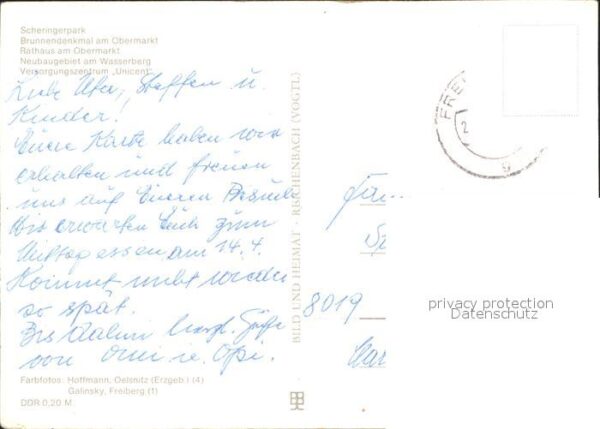 Scheringerpark
Brunnendenkmal am Obermarkt
Rathaus am Obermarkt
Neubaugebiet am Wasserberg
Versorgungszentrum „Unicent"
Liebe Uta, Steffen u.
Kinder!
Eure Karte haben wir
erhalten und freuen
uns auf Eueren Besuch.
Wir erwarten Euch zum
Mittagessen am 14.4.
Kommt nicht wieder
so spät.
Bis dahin herzl. Grüße
von Omi u. Opi.
Farbfotos: Hoffmann, Oelsnitz (Erzgeb.) (4)
Galinsky, Freiberg (1)
DDR 0,20 M.
BILD UND HEIMAT · REICHENBACH (VOGTL)
FREI
2
9
Fam
8019
privacy protection
Datenschutz